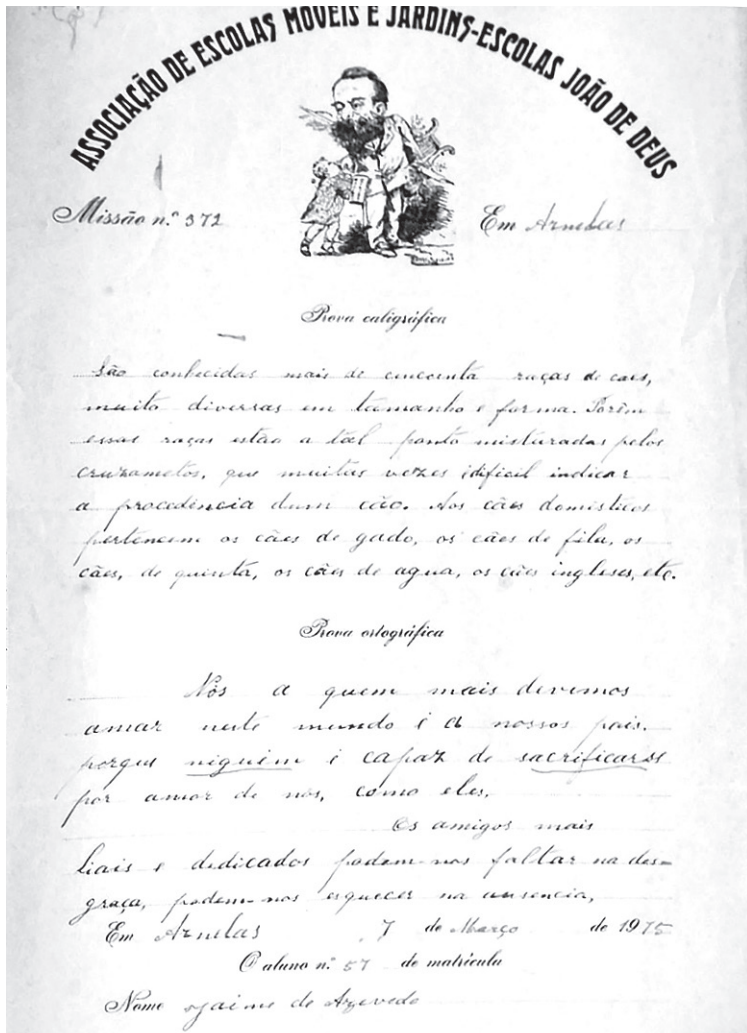 ASSOCIAÇÃO DE ESCOLAS MÓVEIS E JARDINS-ESCOLAS JOÃO DE DEUS
Missão n.º 372
Em Arnelas
Prova caligráfica
São conhecidas mais de cincoenta raças de cães,
muito diversas em tamanho e forma. Porêm
essas raças estão a tal ponto misturadas pelos
cruzametos, que muitas vezes idificil indicar
a procedência dum cão. Aos cães domésticos
pertencem os cães de gado, os cães de fila, os
cães, de quinta, os cães de agua, os cães ingleses, etc.
Prova ortográfica
Nós a quem mais devemos
amar neste mundo é a nossos pais.
porque niguêm é capaz de sacrificarse
por amor de nós, como eles.
Os amigos mais
liais e dedicados podem-nos faltar na des-
graça, podem-nos esquecer na ausencia,
Em Arnelas 7 de Março de 1915
O aluno n.º 57 de matrícula
Nome Jaime de Azevedo